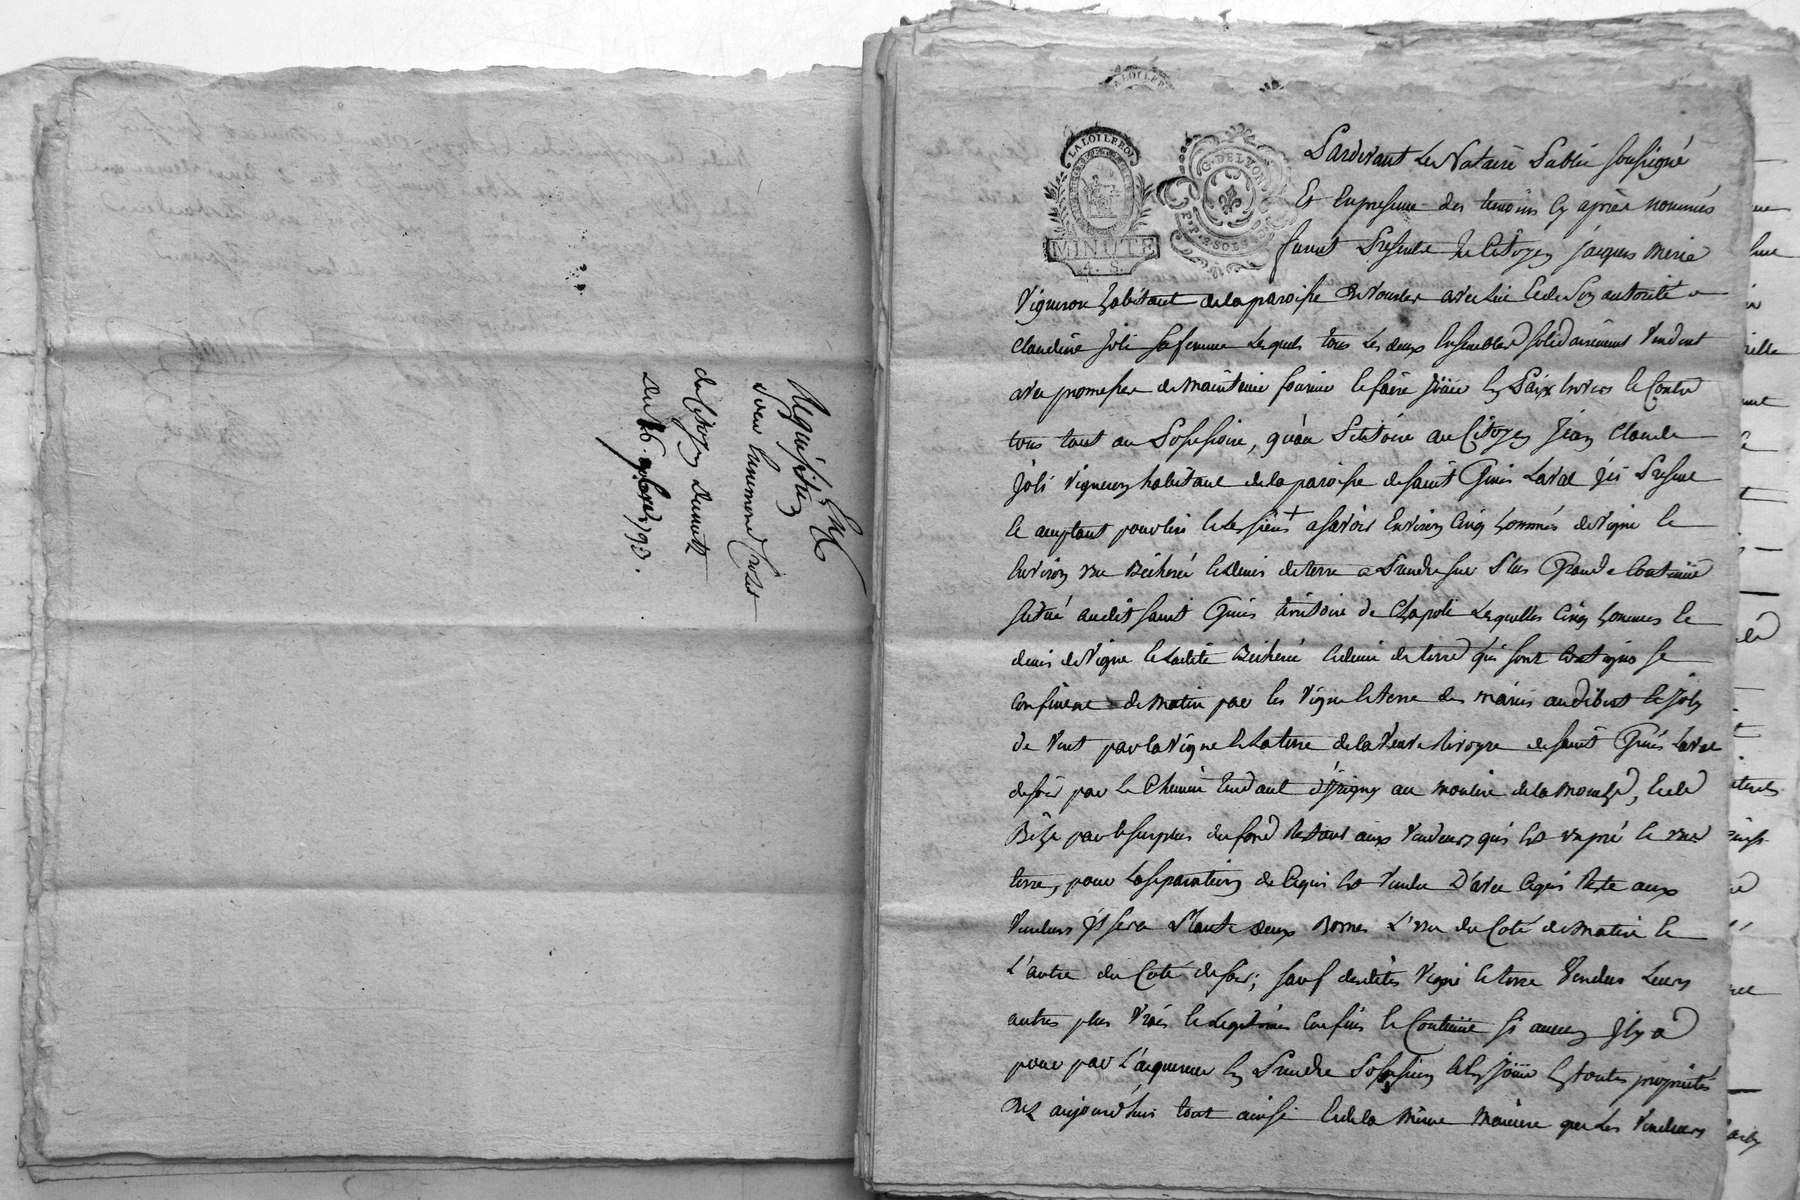 Enc
Requisition
pour Annemond
du Citoyen
Du 16. 9bre 1793.
LA LOI LE ROI
MINUTE
4. S.
G. DE LYON
P.P. 2 SOLS
Pardevant Le Notaire Public soussigné
Et En presence des temoins Cy après nommés
furent Presents Le Citoyen jacques
Vigneron habitant de la paroisse de Vourles avec lui Et de son autorité
Claudine joli sa femme Lesquels tous Les deux Ensemble solidairement Vendent
avec promesse de Maintenir fournir Et faire jouir En Paix Envers Et Contre
tous tant au Possessoire, qu'au Petitoire au Citoyen Jean Claude
Joli Vigneron habitant de la paroisse de saint Genis Laval ici Present
Et acceptant pour lui Et les siens + a savoir Environ Cinq hommés de Vigne Et
Environ une Bicherée Et demis de terre a Prendre sur Plus Grande Contenüe
situé audit saint Genis territoire de Chapoli Lesquelles Cinq hommes Et
demis de Vigne Et Ladite Bicherée Et demie de terre qui sont Contigus se
Confinent de Matin par les Vigne Et terre des mariés audibert Et Joly
de Vent par la Vigne Et La terre de la Veuve de saint Genis Laval
de soir par Le Chemin tendant d'Irigny au moulin de la Mouche, Et de
Bize par le surplus du fond Restant aux Vendeurs qui Est en pré Et en
terre, pour La separation de Ce qui Est Vendu D'avec Ce qui Reste aux
Vendeurs Il sera Planté deux Bornes L'une du Coté de Matin Et
L'autre du Coté de soir; sauf desdites Vigne Et terre Vendus Leurs
autres plus Vrais Et Legitimes Confins Et Contenüe si aucun il y a
pour par L'acquereur En Prendre Possession Et En Jouir En toutes proprietés
Dez aujourd'hui tout ainsi Et de la Même Maniere que Les Vendeurs